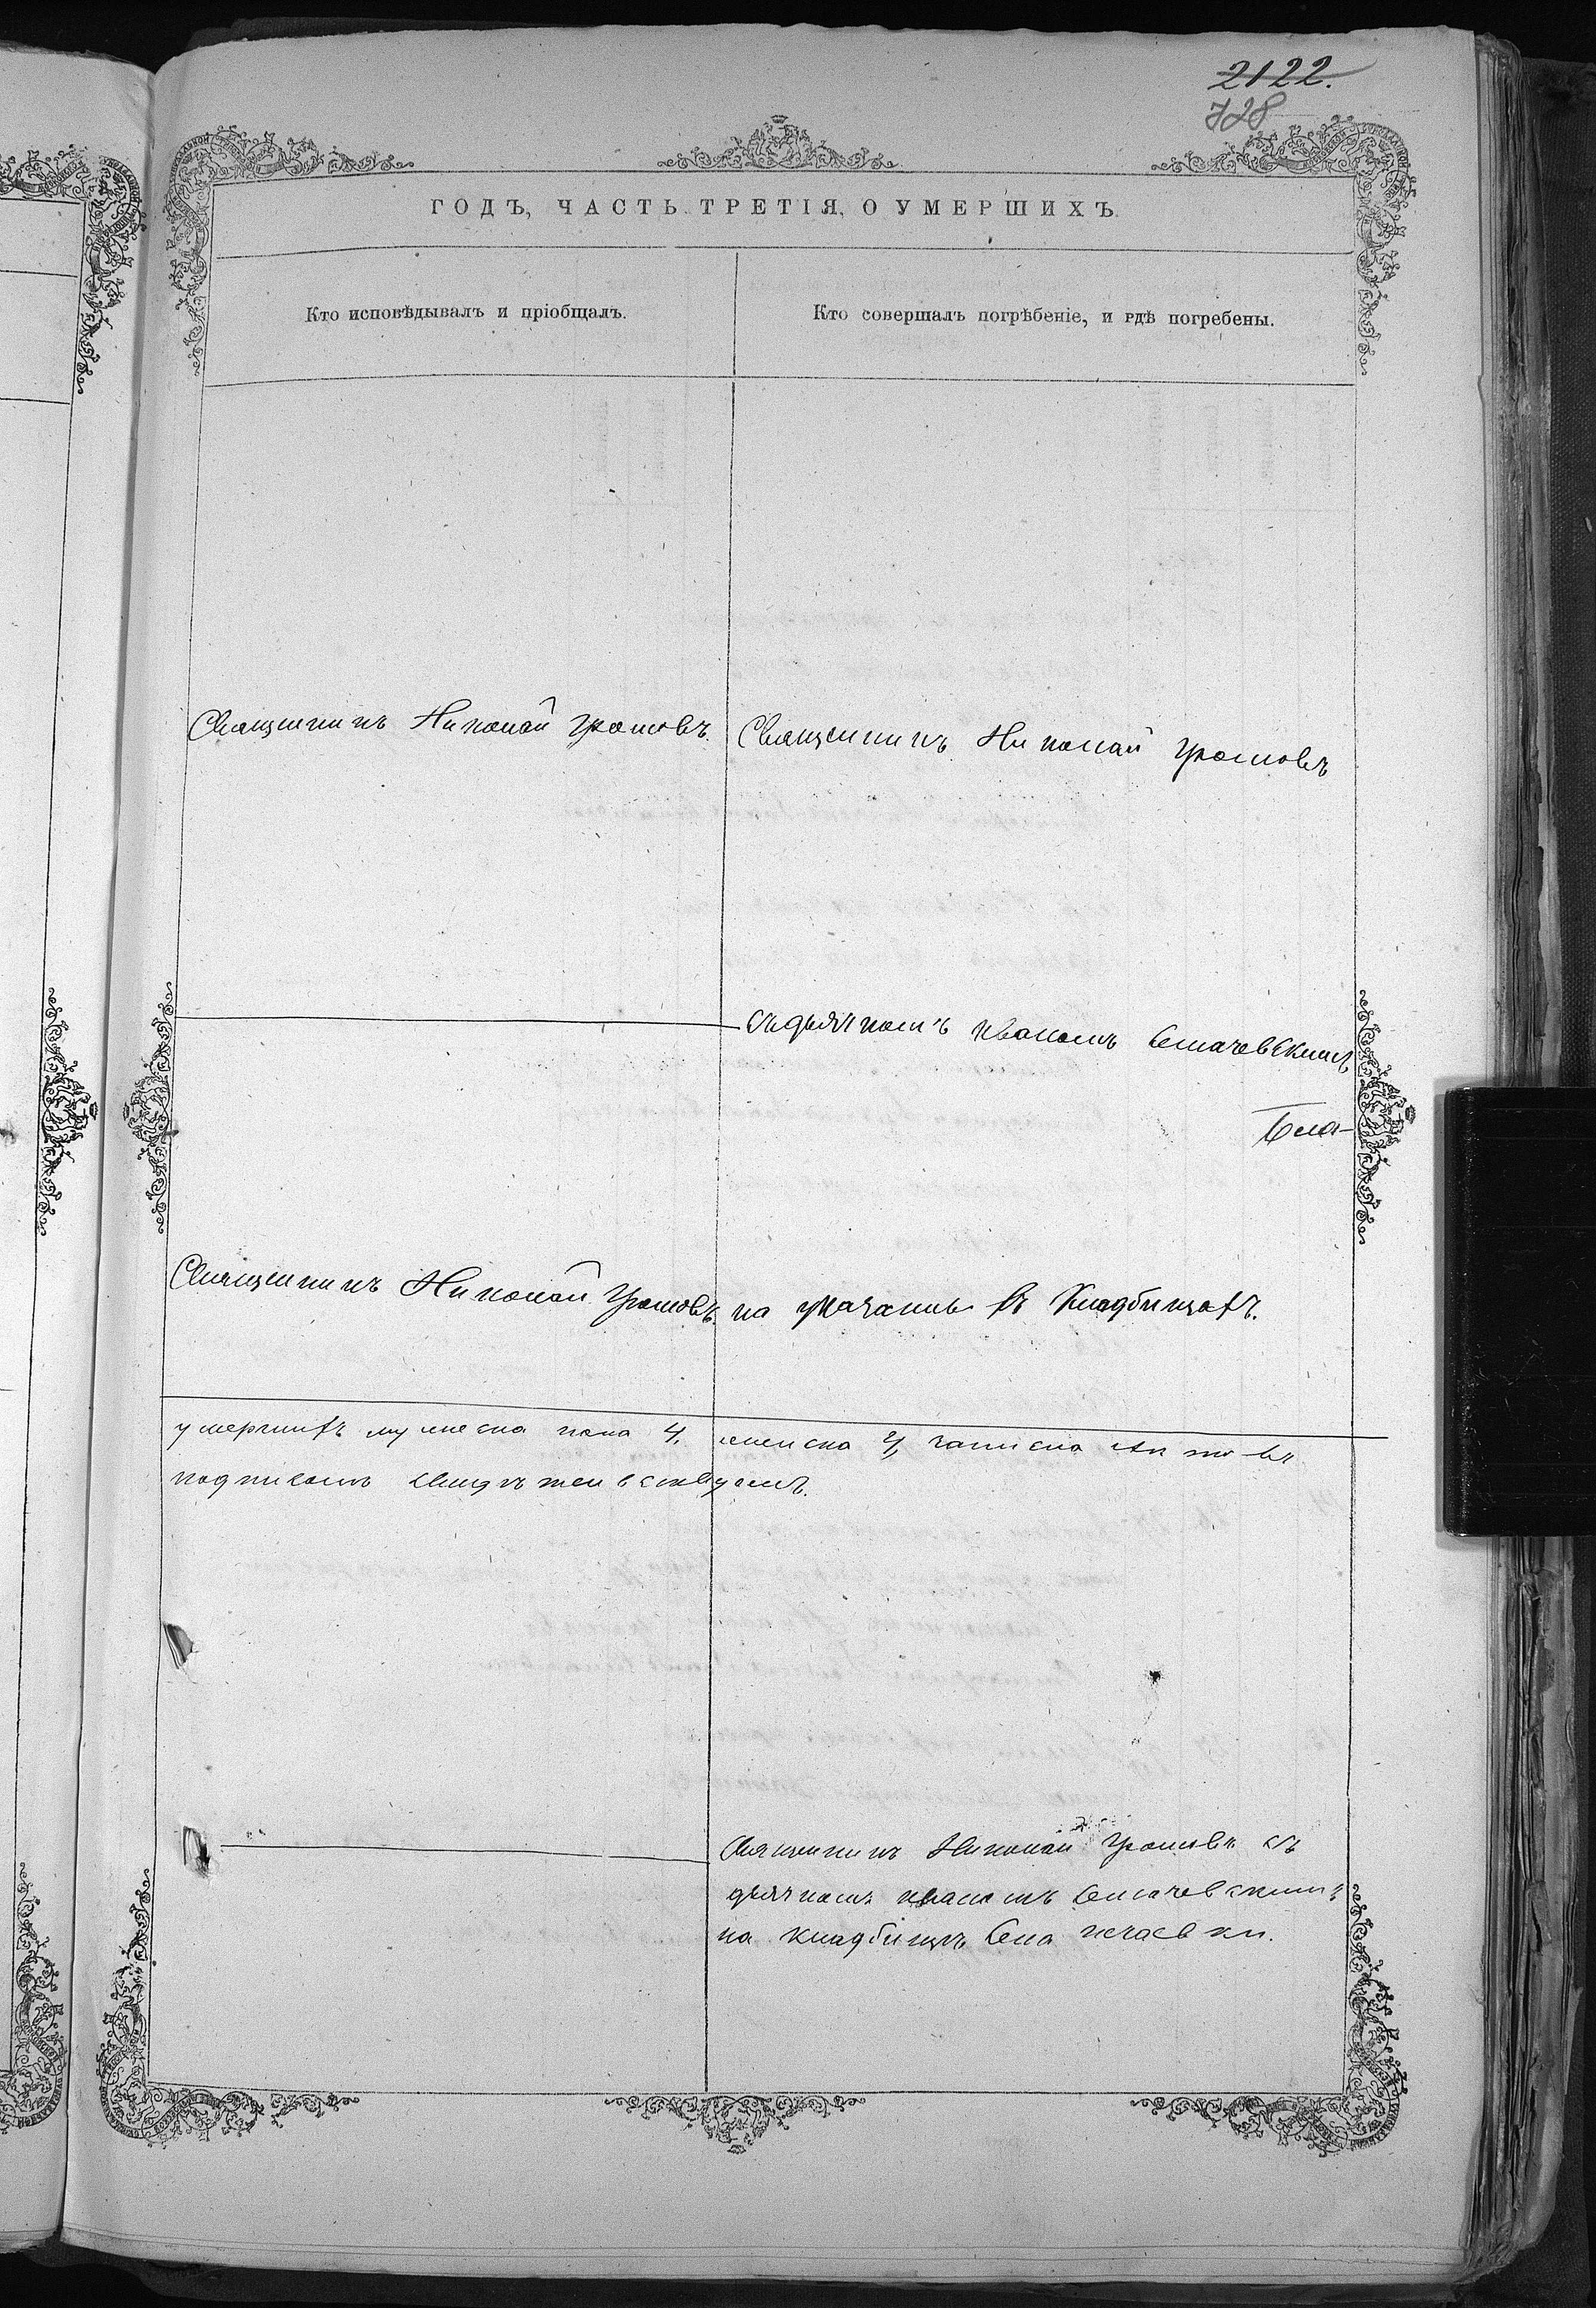 2122.
728
ГОДЪ, ЧАСТЬ ТРЕТІЯ, О УМЕРШИХЪ.
Кто исповѣдывалъ и пріобщалъ.
Кто совершалъ погрѣбеніе, и гдѣ погребены.
Священникъ Николай Громовъ.
Священникъ Николай Громовъ
съ дьячкомъ Иваномъ
Священникъ Николай Громовъ.
на въ Кладбищахъ.
умершихъ мужеска пола 4, женска 4, записка
подписомъ свидѣтельствуемъ.
Священникъ Николай Громовъ съ
дьячкомъ Иваномъ
на кладбищѣ села